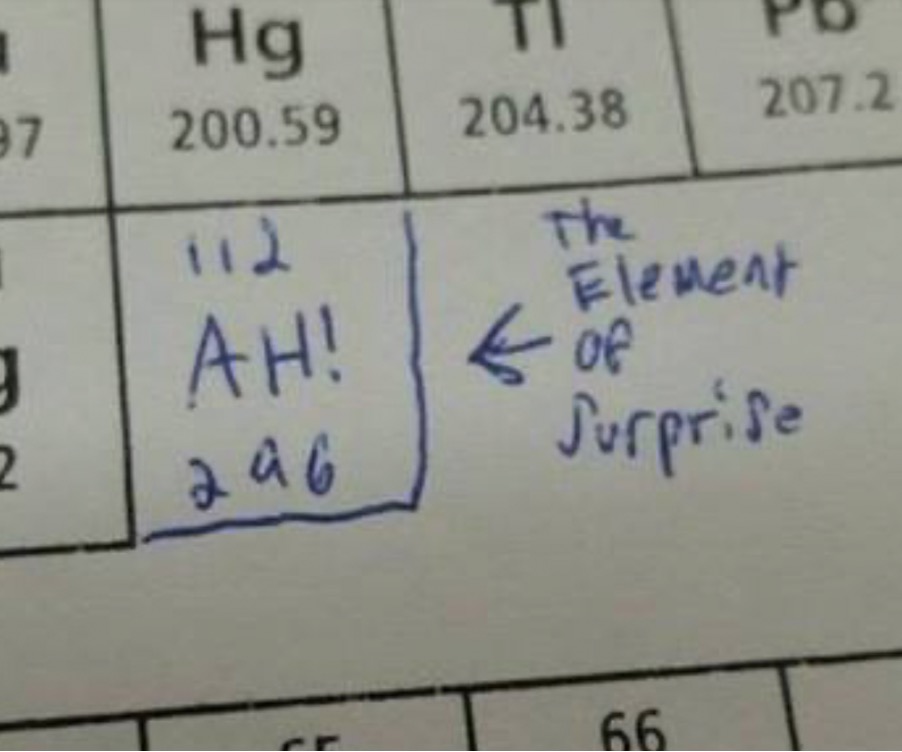 Hg
Tl
Pb
97
200.59
204.38
207.2
112
AH!
296
← The
Element
OF
Surprise
g
2
65
66